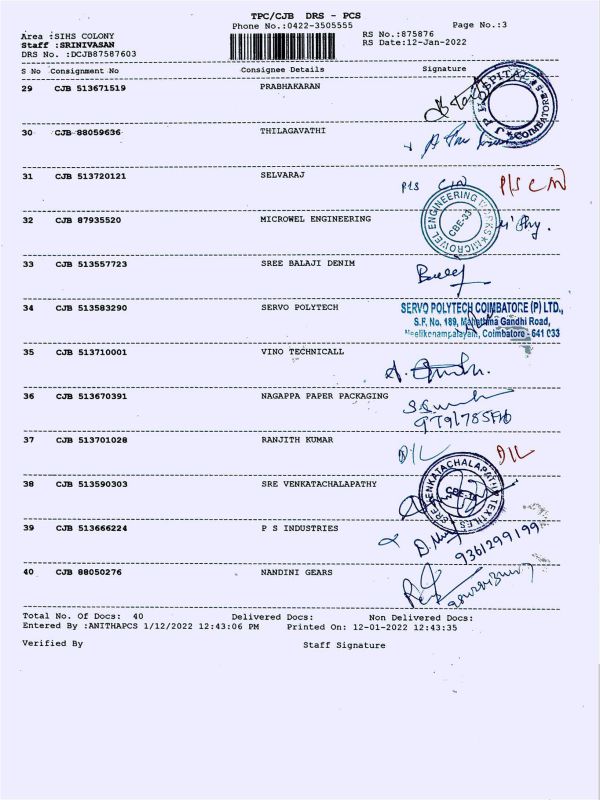 TPC/CJB DRS - PCS
Phone No.:0422-3505555
Page No.:3
Area :SIHS COLONY
RS No.:875876
Staff :SRINIVASAN
RS Date:12-Jan-2022
DRS No. :DCJB87587603
S No Consignment No Consignee Details Signature
29 CJB 513671519 PRABHAKARAN
HOSPITAL
COIMBATORE
30 CJB 88059636 THILAGAVATHI
31 CJB 513720121 SELVARAJ
P/S C/N P/S C/N
32 CJB 87935520 MICROWEL ENGINEERING
MICROWEL ENGINEERING WORKS
CBE-33
33 CJB 513557723 SREE BALAJI DENIM
34 CJB 513583290 SERVO POLYTECH
SERVO POLYTECH COIMBATORE (P) LTD.,
S.F. No. 189, Mahathma Gandhi Road,
Neelikonampalayam, Coimbatore - 641 033
35 CJB 513710001 VINO TECHNICALL
36 CJB 513670391 NAGAPPA PAPER PACKAGING
37 CJB 513701028 RANJITH KUMAR
D/L D/L
38 CJB 513590303 SRE VENKATACHALAPATHY
SRE VENKATACHALAPATHY TEXTILES
39 CJB 513666224 P S INDUSTRIES
9361299199
40 CJB 88050276 NANDINI GEARS
Total No. Of Docs: 40 Delivered Docs: Non Delivered Docs:
Entered By :ANITHAPCS 1/12/2022 12:43:06 PM Printed On: 12-01-2022 12:43:35
Verified By Staff Signature